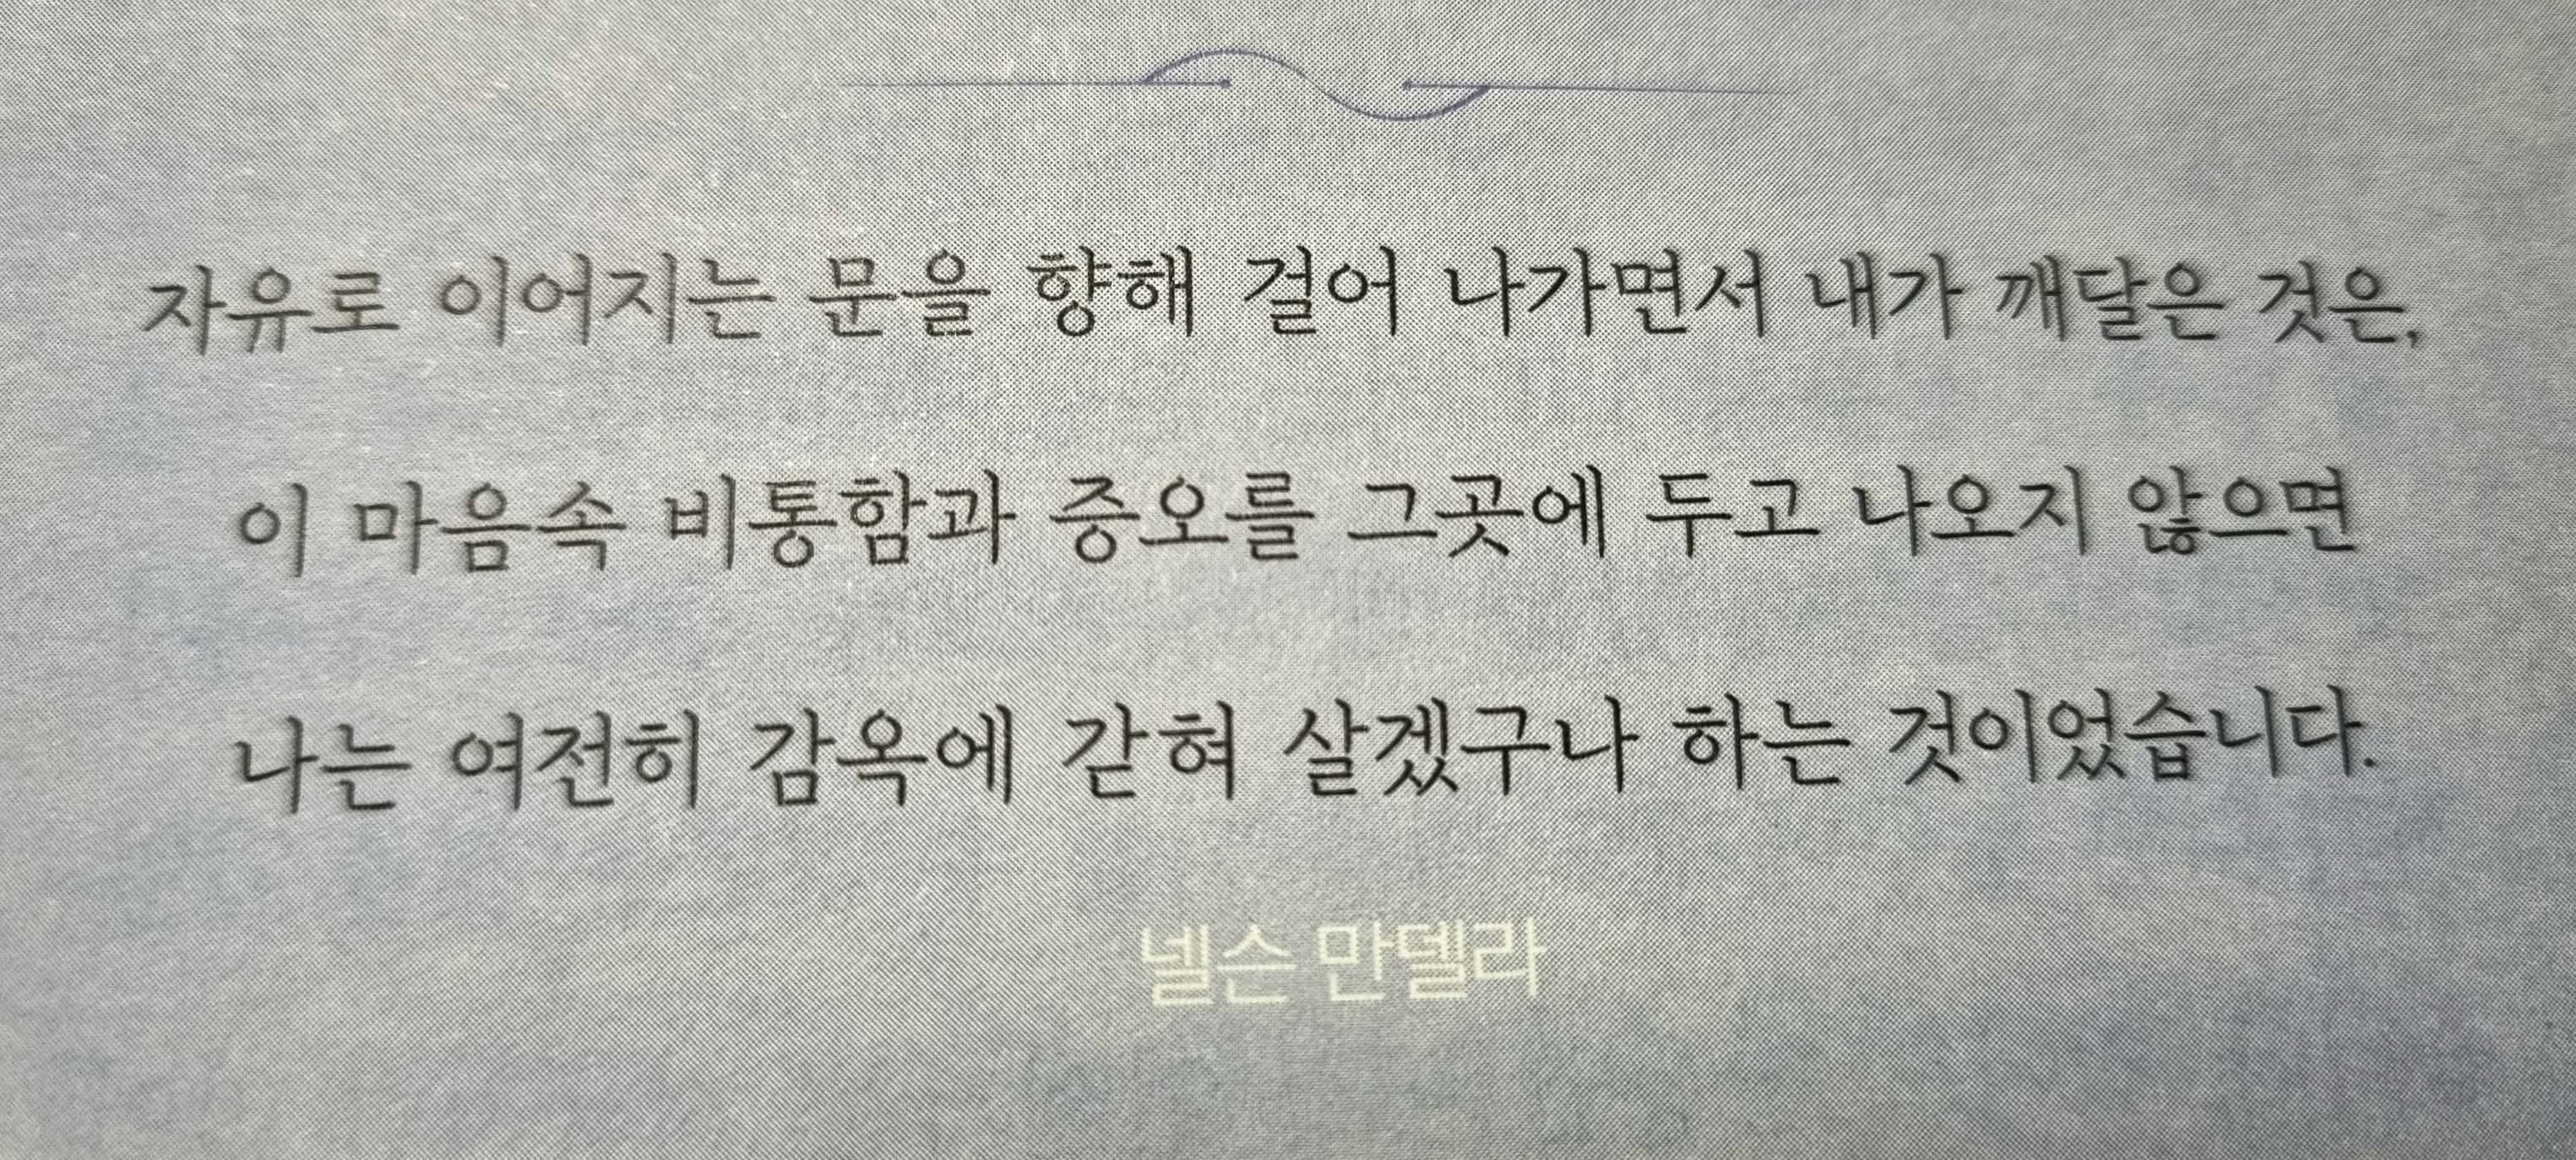 자유로 이어지는 문을 향해 걸어 나가면서 내가 깨달은 것은,
이 마음속 비통함과 증오를 그곳에 두고 나오지 않으면
나는 여전히 감옥에 갇혀 살겠구나 하는 것이었습니다.
넬슨 만델라